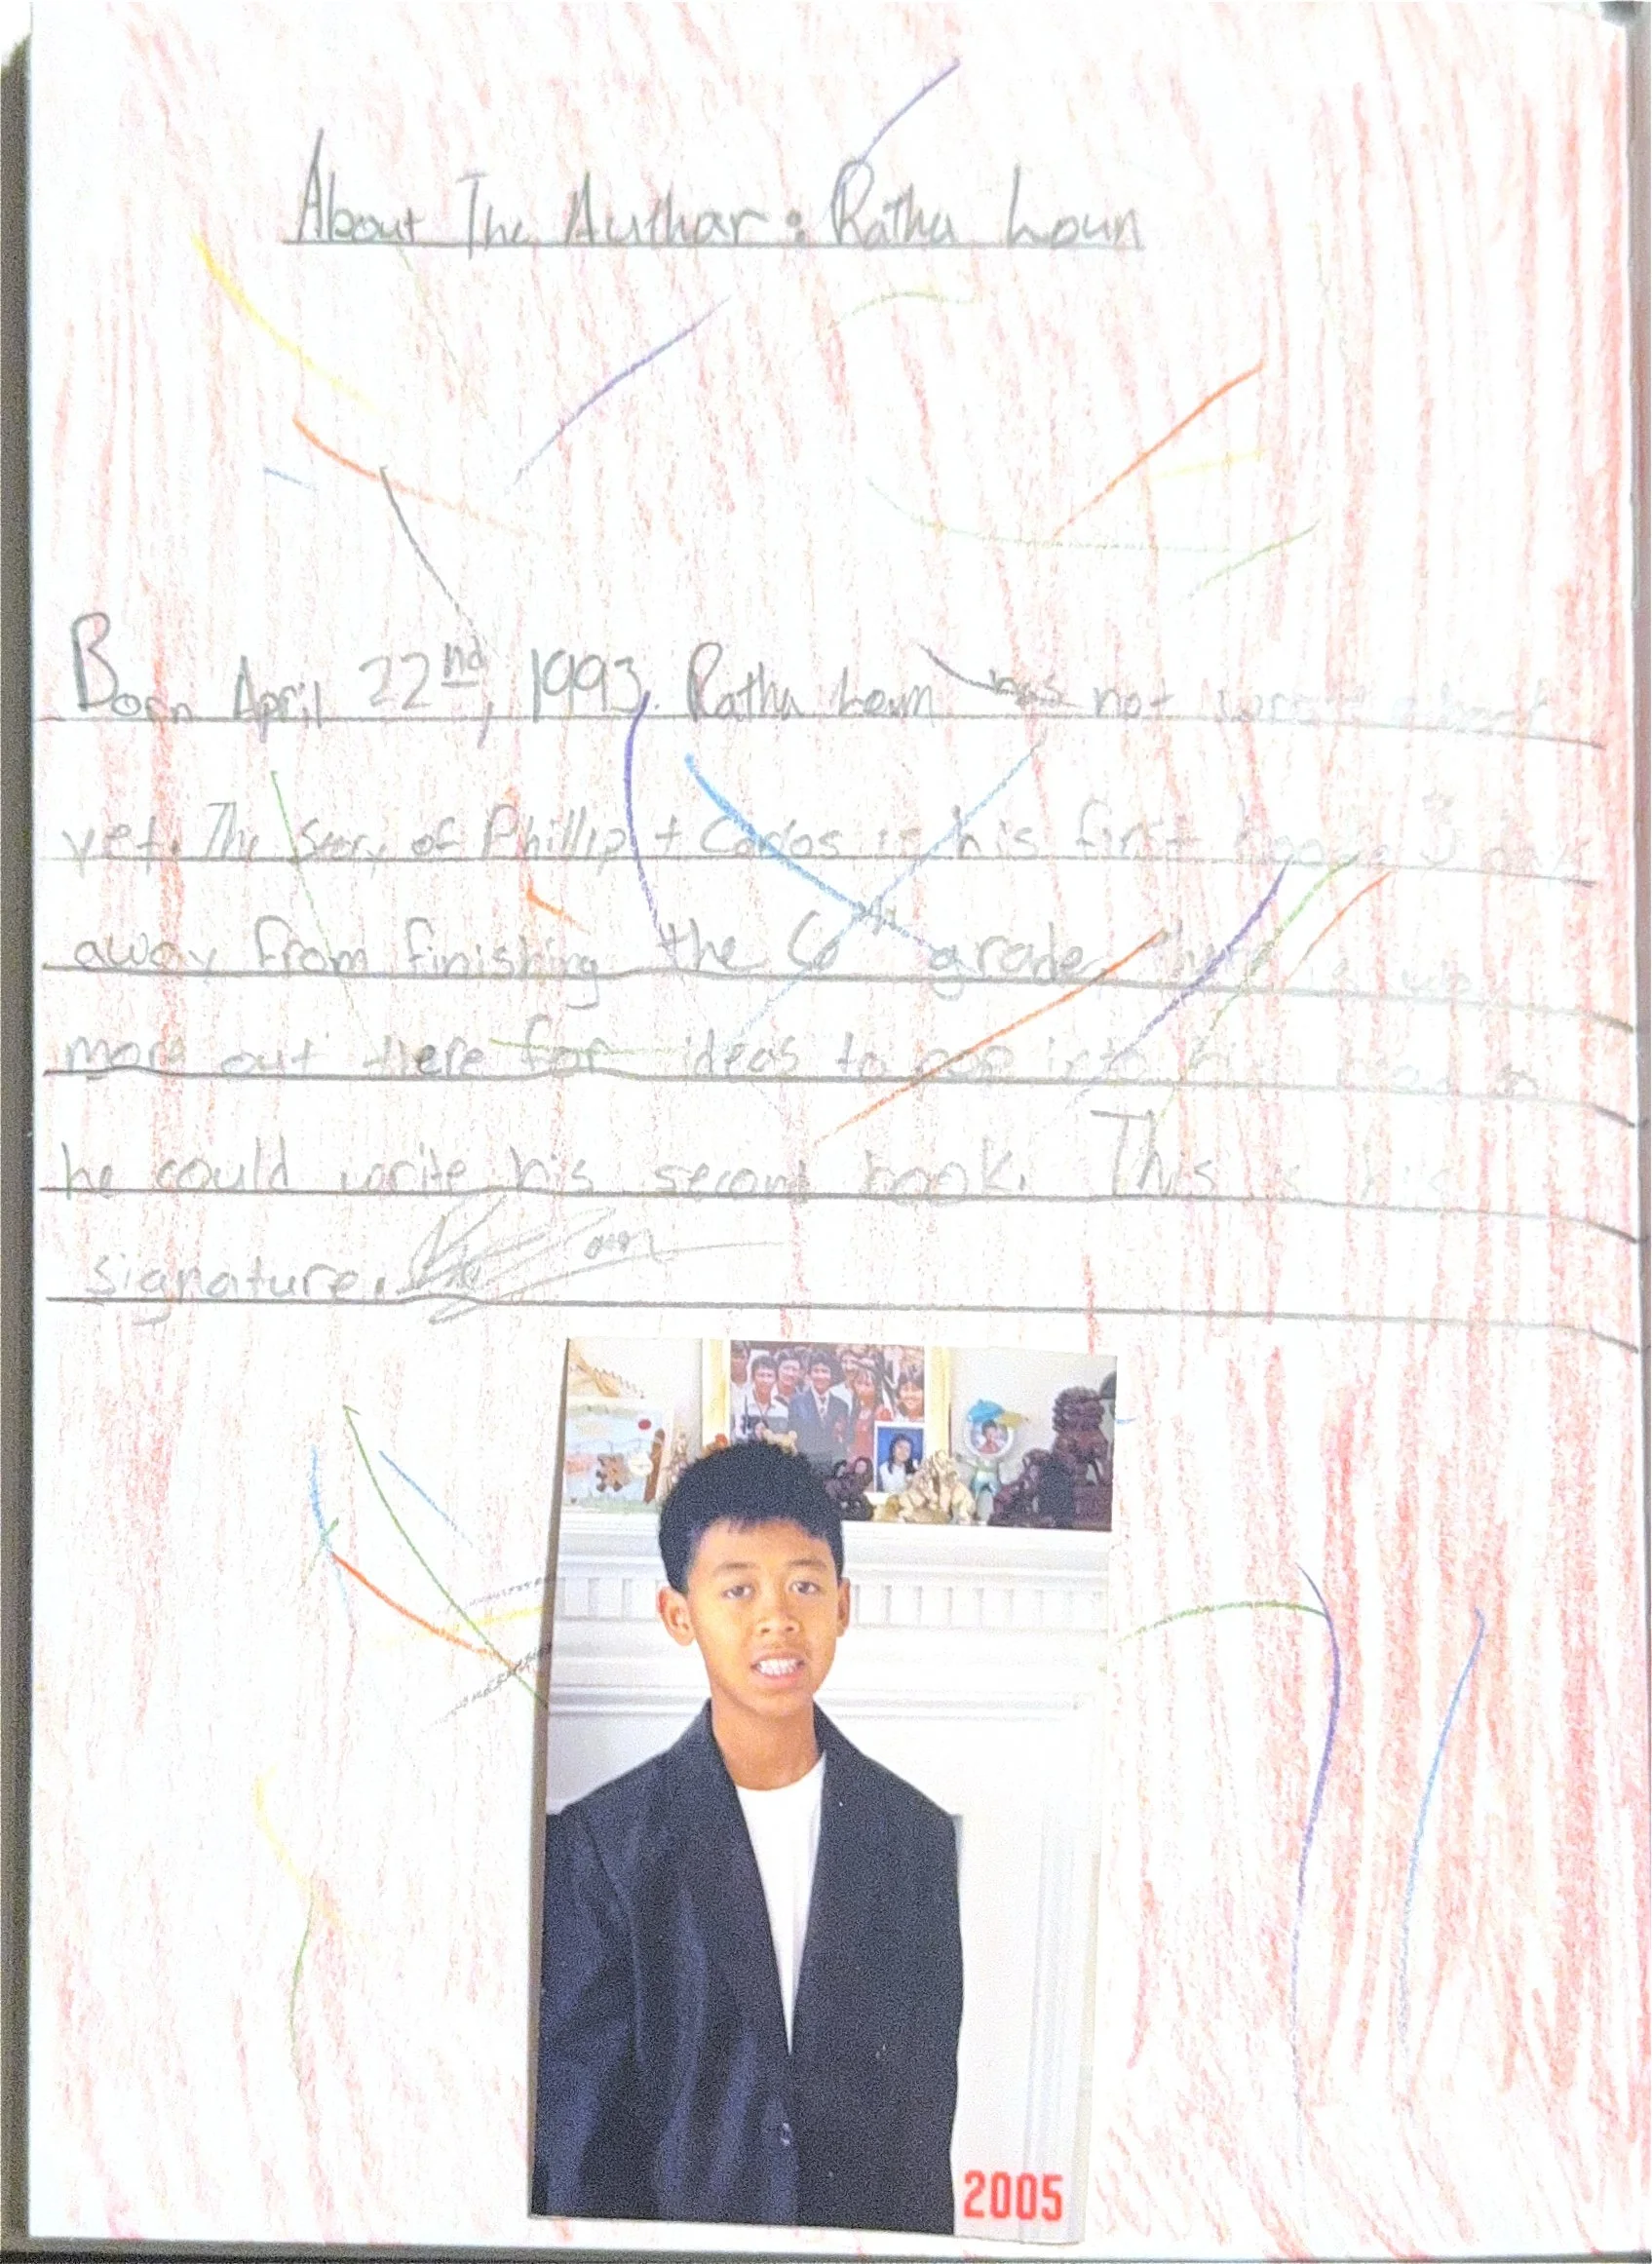 About The Author: Ratha Loun
Born April 22nd, 1993. Ratha Loun has not
yet. The Story of Phillip + Carlos is his first book. 3 days
away from finishing the 6th grade, there is way
more out there for ideas to pop into his head so
he could write his second book. This is his
signature.
2005